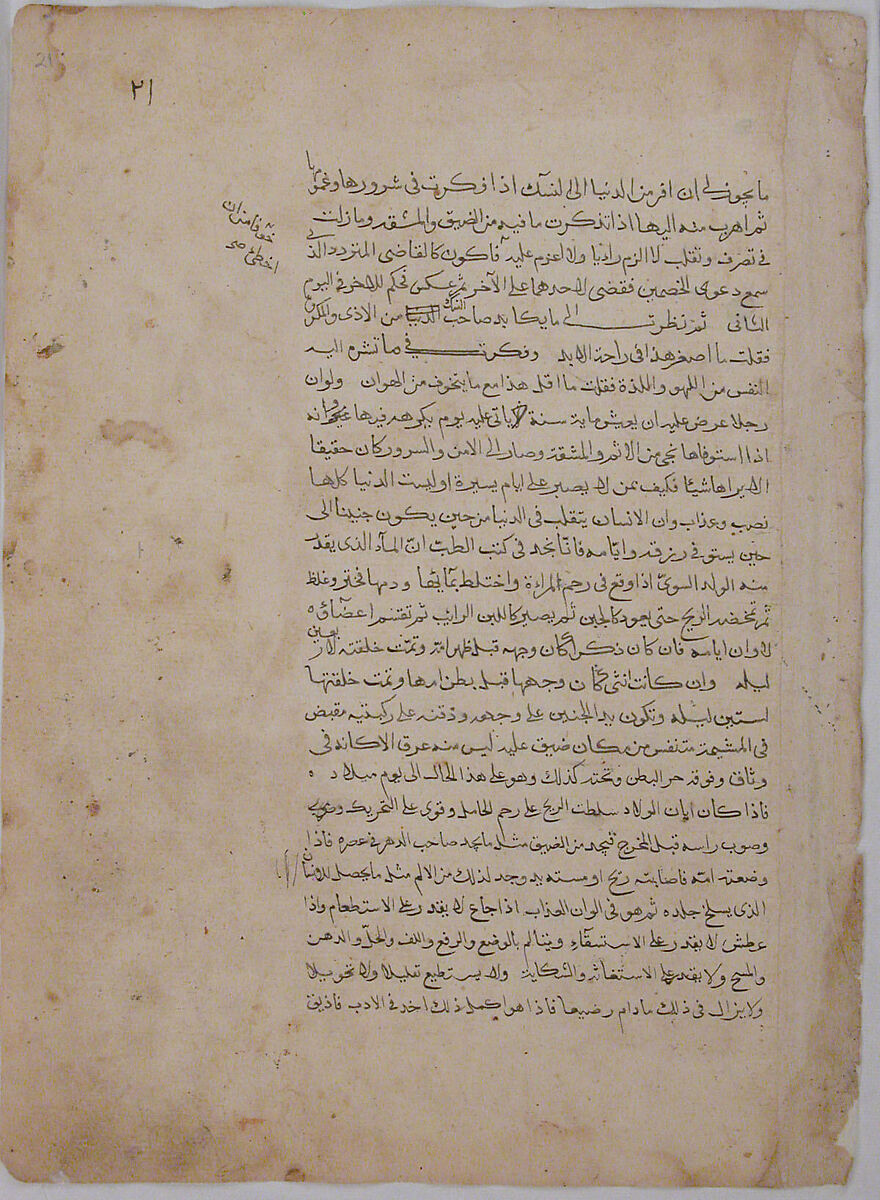 21
٢١
ما يجوز لي ان افر من الدنيا الى النسك اذا فكرت في شرورها وغمومها
ثم اهرب منه اليها اذا تذكرت ما فيه من الضيق والمشقة وما زلت
في تصرف وتقلب لا الزم رايا ولا اعزم عليه فاكون كالقاضي المتردد الذي
سمع دعوى الخصمين فقضى لاحدهما على الآخر ثم عكس فحكم للاخر في اليوم
الثاني ثم نظرت الى ما يكابد صاحب النسك من الاذى والمكروه
فقلت ما اصغر هذا في راحة الابد وفكرت في ما تشره اليه
النفس من اللهو واللذة فقلت ما اقل هذا مع ما يتخوف من الهوان ولو ان
رجلا عرض عليه ان يعيش ماية سنة ياتي عليه يوم يكره فيها وانه
اذا استوفاها نجى من الاثم والمشقة وصار الى الامن والسرور كان حقيقا
الا يراها شيئا فكيف بمن لا يصبر على ايام يسيرة اوليست الدنيا كلها
نصب وعذاب وان الانسان يتقلب في الدنيا من حين يكون جنينا الى
حين يستوفي رزقه وايامه فانا نجد في كتب الطب ان الماء الذي يقدر
منه الولد السوي اذا وقع في رحم المراءة واختلط بمائها ودمها فخثر وغلظ
ثم تمخضه الريح حتى يعود كالجبن ثم يصير كاللبن الرائب ثم تقتسم اعضاؤه
لاوان ايامه فان كان ذكرا كان وجهه قبل ظهر امه وتمت خلقته لاربعين
ليله وان كانت انثى كان وجهها قبل بطن امها وتمت خلقتها
لستين ليله وتكون يد الجنين على وجهه وذقنه على ركبتيه مقبض
في المشيمة متنفس من مكان ضيق عليه ليس منه عرق الا كانه في
وثاق وفوقه حر البطن وتحته كذلك وهو على هذا الحال الى يوم ميلاده
فاذا كان ابان الولاد سلطت الريح على رحم الحامل وقوى على التحريك
وصوب راسه قبل المخرج فيجد من الضيق مثل ما يجد صاحب الدهر في عصره فاذا
وضعته امه فاصابته ريح او مسته يد وجد لذلك من الالم مثل ما يحصل للانسان
الذي يسلخ جلده ثم هو في الوان العذاب اذا جاع لا يقدر على الاستطعام واذا
عطش لا يقدر على الاستسقاء ويتالم بالوضع والرفع واللف والحل والدهن
والمسح ولا يقدر على الاستغاثه والشكاية ولا يستطيع تقليلا ولا تحويلا
ولا يزال في ذلك ما دام رضيعا فاذا هو اكمل ذلك اخذ في الادب فاذيق
خوفا من ان
اخطئ